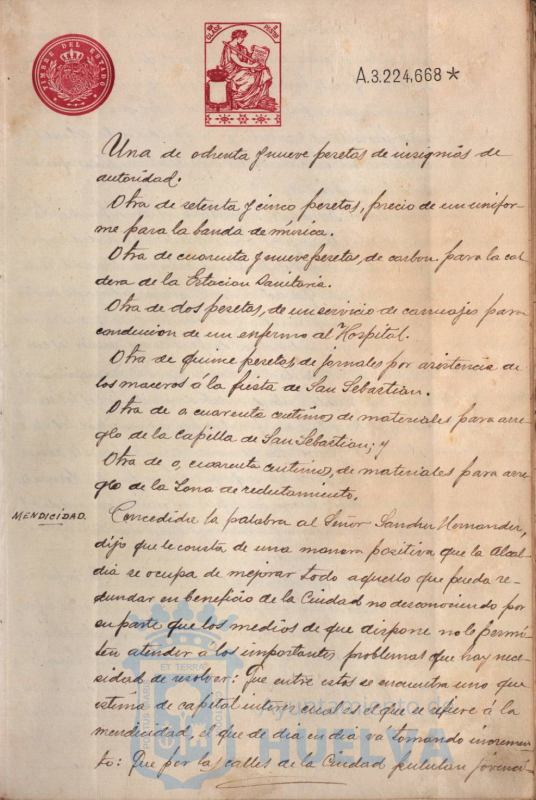 TIMBRE DEL ESTADO
CLASE
A.3.224,668*
Una de ochenta y nueve pesetas de insignias de
autoridad.
Otra de setenta y cinco pesetas, precio de un unifor-
me para la banda de música.
Otra de cuarenta y nueve pesetas, de carbon para la cal
dera de la Estacion Sanitaria.
Otra de dos pesetas, de un servicio de carruajes para
conduccion de un enfermo al Hospital.
Otra de quince pesetas, de jornales por asistencia de
los maceros á la fiesta de San Sebastian.
Otra de o cuarenta centimos, de materiales para arre-
glo de la Capilla de San Sebastian; y
Otra de o, cuarenta centimos, de materiales para arre
glo de la Zona de reclutamiento.
MENDICIDAD.
Concedida la palabra al Señor Sanchez Hernandez,
dijo que le consta de una manera positiva que la Alcal
dia se ocupa de mejorar todo aquello que pueda re-
dundar en beneficio de la Ciudad no desconociendo por
su parte que los medios de que dispone no le permi-
ten atender á los importantes problemas que hay nece-
sidad de resolver: Que entre estos se encuentra uno que
estima de capital interes cual es el que se refiere á la
mendicidad, el que de dia en dia va tomando incremen
to: Que por las calles de la Ciudad pululan jovenci-
PORTUS MARIS
ET TERRAE
CUSTODIA
Ayuntamiento de
HUELVA